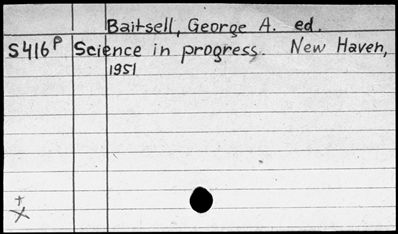 Baitsell, George A. ed.
S416P Science in progress. New Haven,
1951